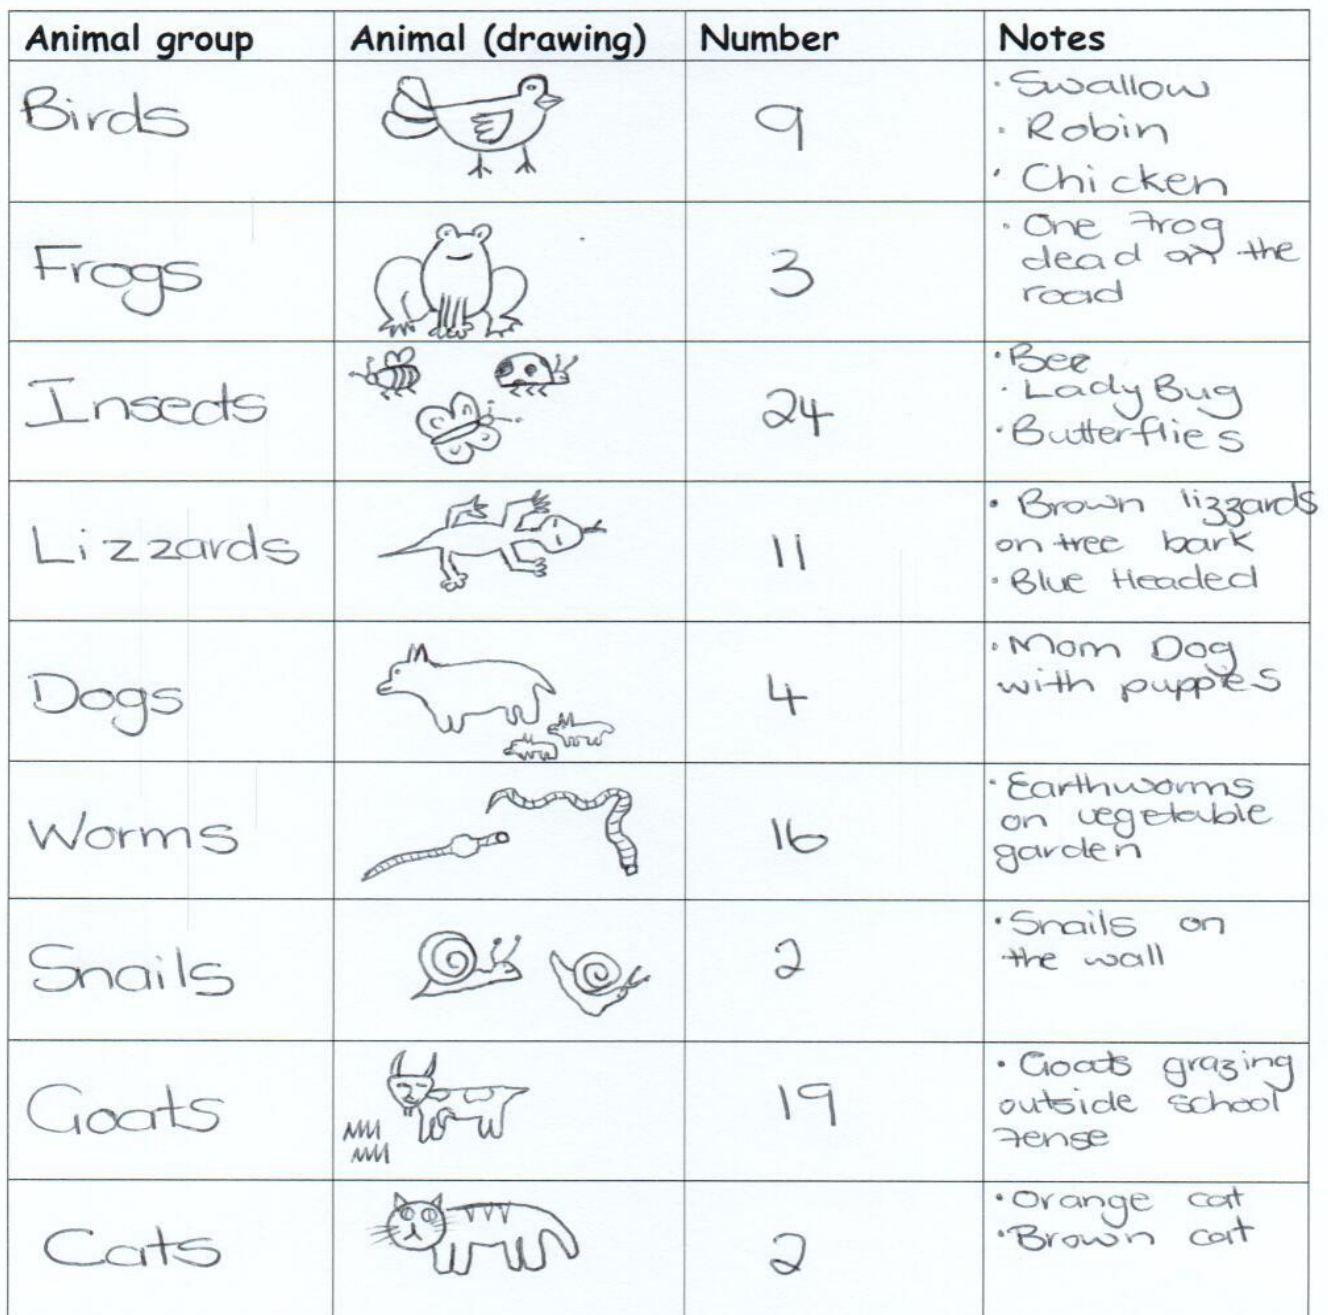 Animal group Animal (drawing) Number Notes
Birds 9
· Swallow
· Robin
· Chicken
Frogs 3
· One Frog
dead on the
road
Insects 24
· Bee
· Lady Bug
· Butterflies
Lizzards 11
· Brown lizzards
on tree bark
· Blue Headed
Dogs 4
· Mom Dog
with puppies
Worms 16
· Earthworms
on vegetable
garden
Snails 2
· Snails on
the wall
Goats 19
· Goats grazing
outside school
Fense
Cats 2
· Orange cat
· Brown cat